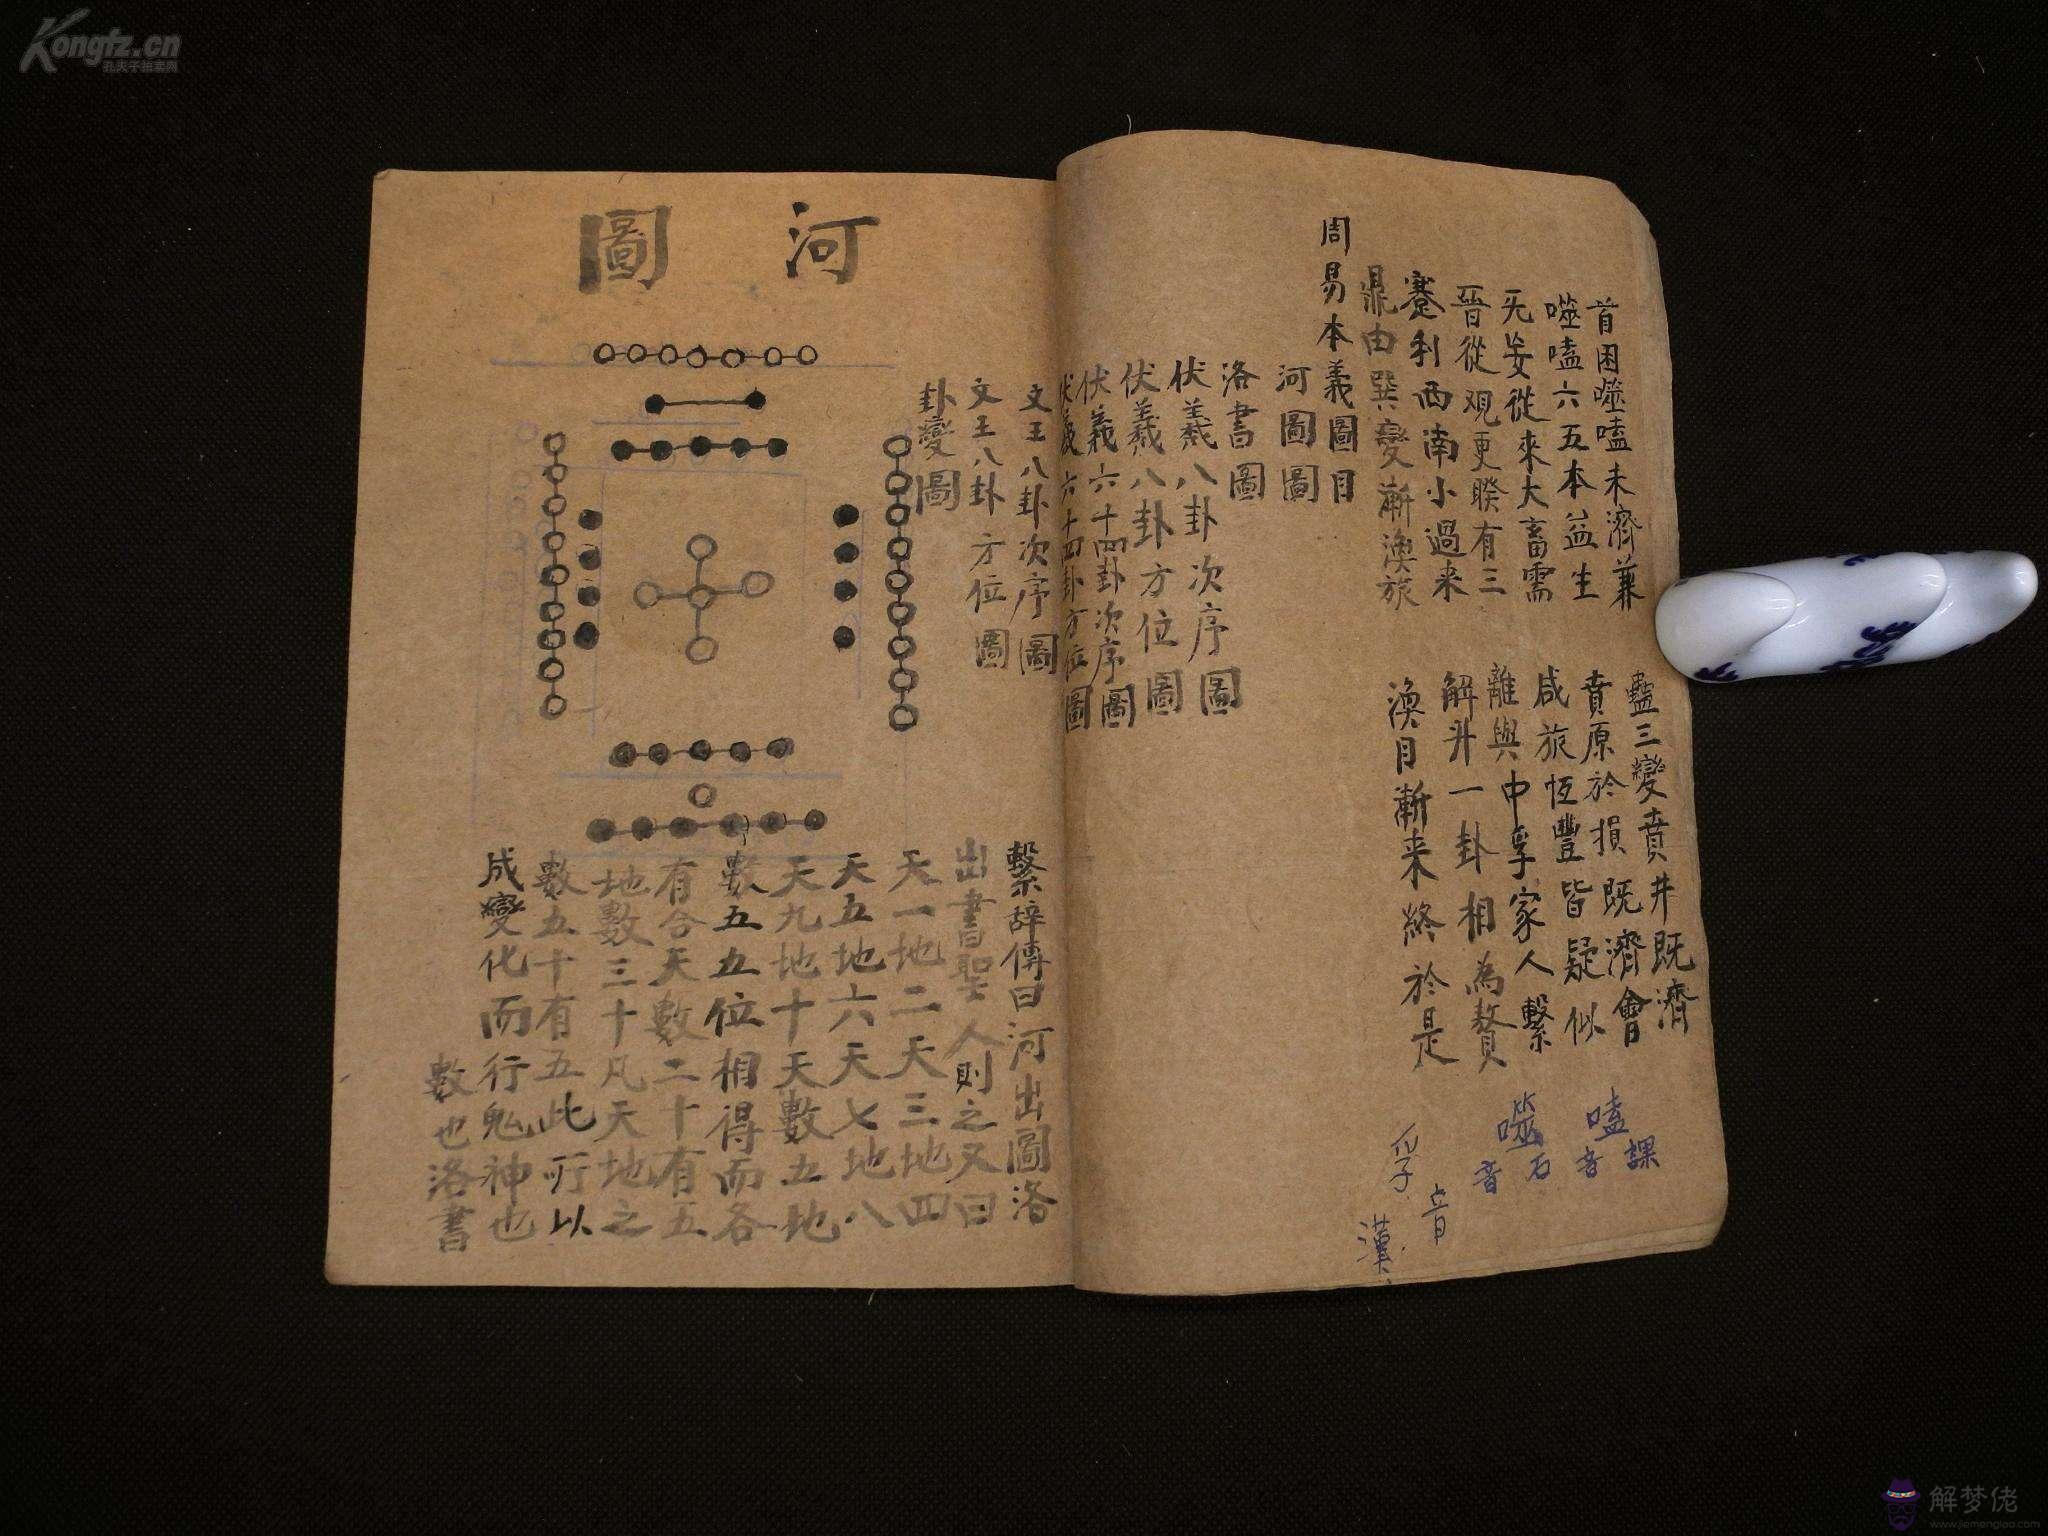 Kongfz.cn
孔夫子拍卖网
首困噬嗑未濟兼
蠱三變賁井既濟
噬嗑六五本益生
賁原於損既濟會
无妄從來大畜需
咸旅恆豐皆疑似
晉從观更睽有三
離與中孚家人繫
蹇利西南小過来
解升一卦相為贅
鼎由巽變漸渙旅
渙自漸来終於是
嗑音課
噬音石
孚音
漢
周易本義圖目
河圖圖
洛書圖
伏羲八卦次序圖
伏羲八卦方位圖
伏羲六十四卦次序圖
伏羲六十四卦方位圖
文王八卦次序圖
文王八卦方位圖
卦變圖
河圖
繫辭傳曰河出圖洛
出書聖人則之又曰
天一地二天三地四
天五地六天七地八
天九地十天數五地
數五五位相得而各
有合天數二十有五
地數三十凡天地之
數五十有五此所以
成變化而行鬼神也
數也洛書
解梦佬
www.jiemenglao.com